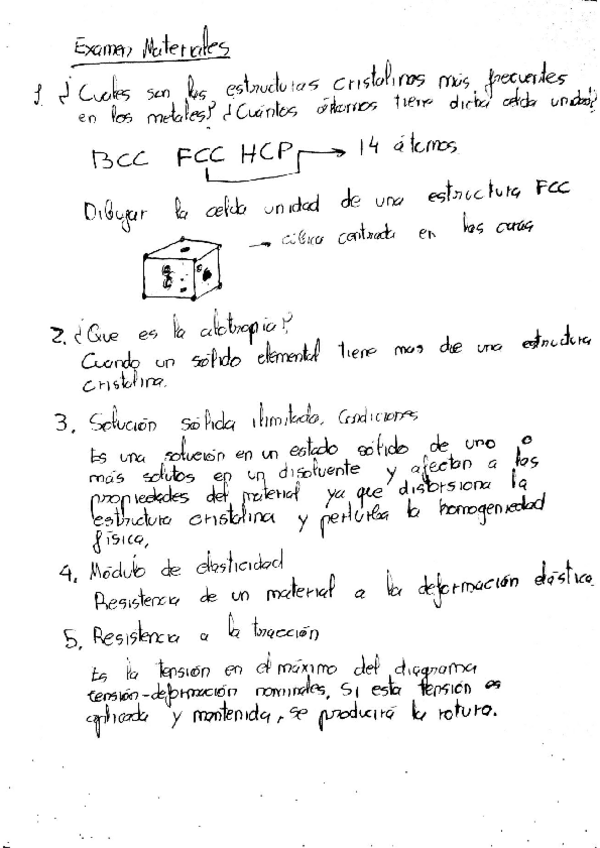 Examen Materiales
1. ¿Cuales son las estructuras cristalinas más frecuentes
en los metales? ¿Cuántos átomos tiene dicha celda unidad?
BCC FCC HCP → 14 átomos
Dibujar la celda unidad de una estructura FCC
→ cúbica centrada en las caras
2. ¿Que es la alotropia?
Cuando un sólido elemental tiene mas de una estructura
cristalina.
3. Solución sólida ilimitada. Condiciones
Es una solución en un estado sólido de uno o
más solutos en un disolvente y afectan a las
propiedades del material ya que distorsiona la
estructura cristalina y perturba la homogeniedad
física.
4. Módulo de elasticidad
Resistencia de un material a la deformación elástica.
5. Resistencia a la tracción
Es la tensión en el máximo del diagrama
tensión-deformación nominales. Si esta tensión es
aplicada y mantenida, se producirá la rotura.